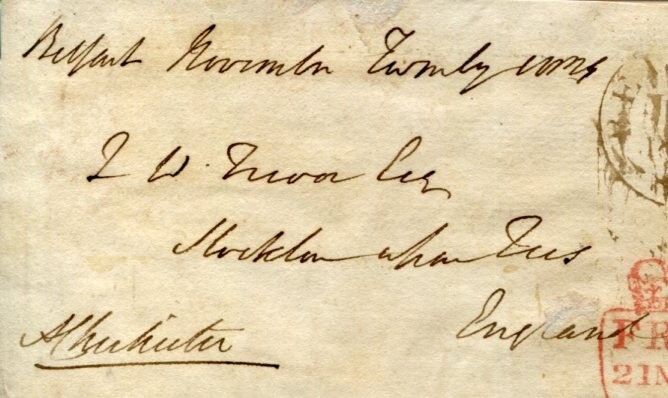 Belfast November Twenty
W. Trevor Esq
Stockton upon Tees
England
A Chichester
FR
21 N